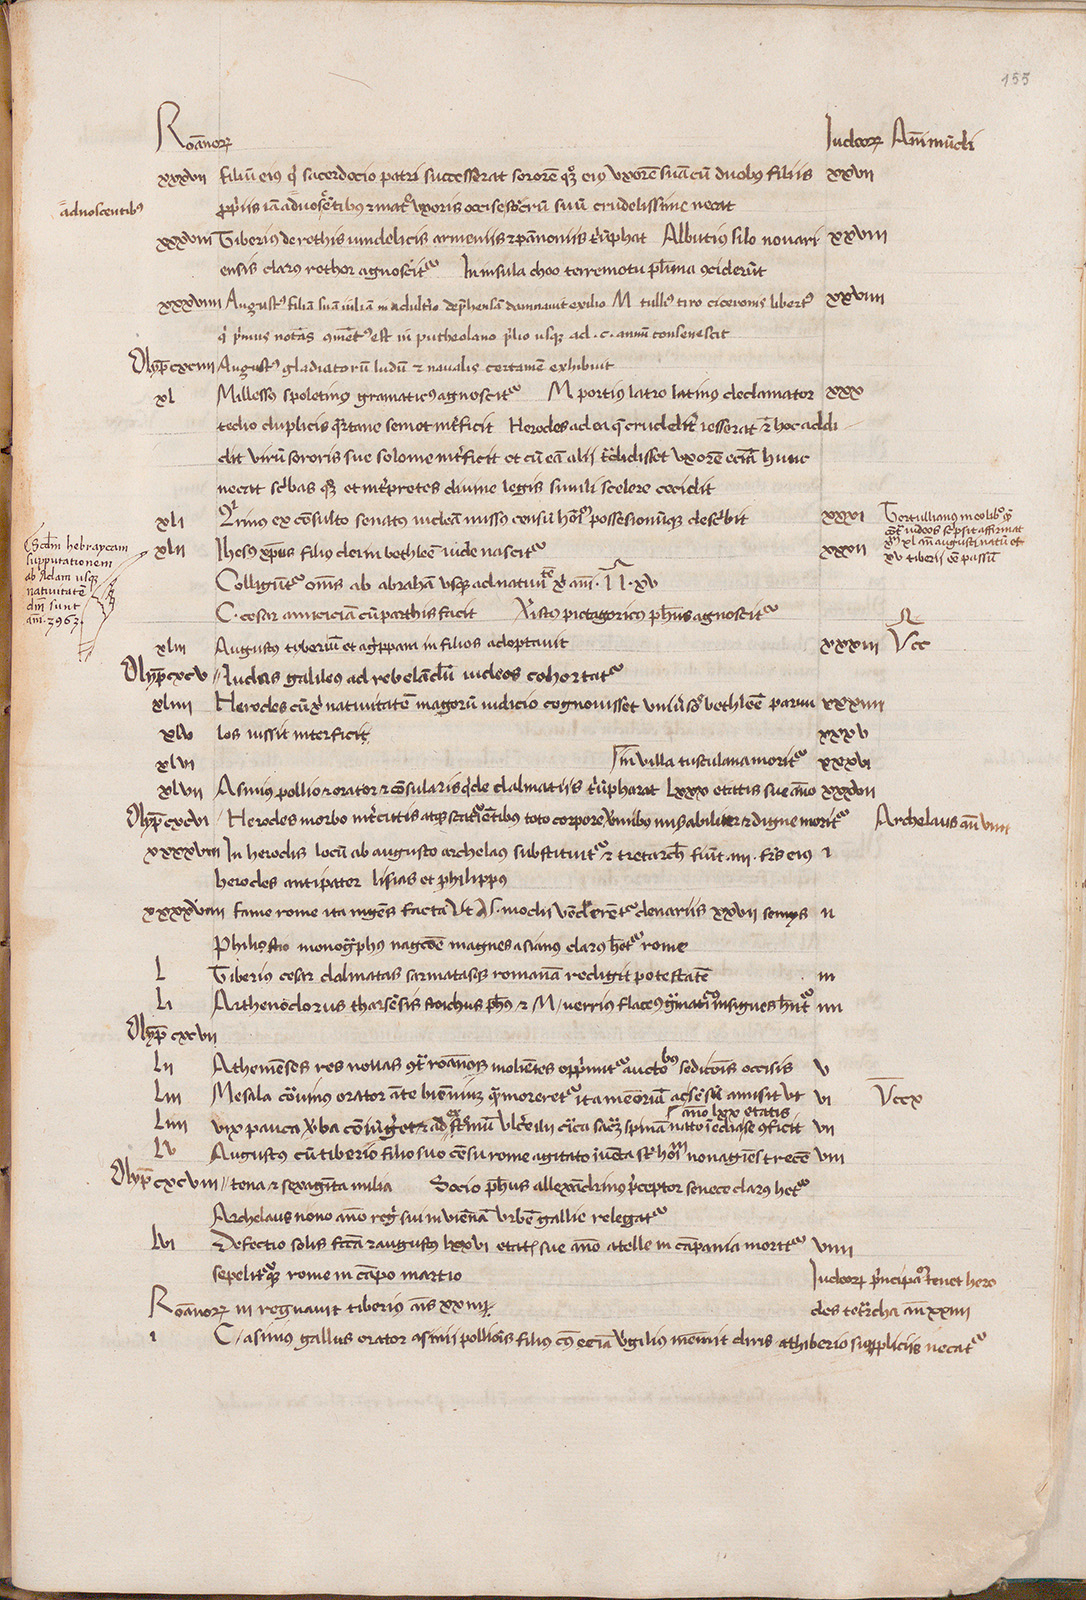 155
Roãnorȝ Iudeorȝ Añi mũdi
xxxvii filiũ eius q̇ sacerdocio patri successerat sororẽ qȝ eius vxorẽ suã cũ duobus filiis xxvii
adnoscentibus
ꝓpriis iã adnoscẽtibus ⁊ matrẽ vxoris occise socrũ suũ crudelissime necat
xxxviii Tiberius de rethis vindelicis armeniis ⁊ pãnoniis triũphat Albutius silo novari xxviii
ensis clarus rethor agnoscitur In insula choo terremotu plurima ꝯciderũt
xxxviiii Augustus filiã suã iuliã in adulterio deprehensã damnavit exilio M tullius tiro ciceronis libertus xxviiii
q̇ primus notas ꝯmẽtus est in putheolano predio usqȝ ad .c. annũ consenescit
Olyp̃ cxciiii Augustus gladiatorũ ludũ ⁊ navalis certamẽ exhibuit
xl Millessus spoletinus gramaticus agnoscitur M portius latro latinus declamator xxx
tedio duplicis quartane semet interficit Herodes ad ea que crudeliter iesserat ⁊ hoc addi
dit virũ sororis sue solome interficit et cũ eã alii tradidisset vxorẽ eciã hunc
necat scribas qȝ et interpretes divine legis simili scelere cecidit
xli Qirinus ex cõsulto senatus iudeã missus censũ hominũ possesionũqȝ describit xxxi
Tertullianus in eo libro quẽ
contra iudeos scripsit affirmat
xp̃m xl añ augusti natũ et
xv tiberii eẽ passũ
xlii Ihesus xp̃us filius dei in bethleẽ iude nascitur xxxii
Scd̃m hebraycam
supputationem
ab Adam usqȝ
nativitatẽ
dñi sunt
añi. 3963.
Colligũtur oms ab abrahã usqȝ ad nativitatẽ xp̃i añi . II . xv
C. cesar amiciciã cũ parthis facit Xistus pictagoricus phus agnoscitur
xliii Augustus tyberiũ et agrippam in filios adoptavit xxxiii Vcc
Olyp̃ cxcv // Iudas galileus ad rebelandũ iudeos cohortatur
xliiii Herodes cũ xp̃i nativitatẽ magorũ iudicio cognovisset universos bethleẽ parvu xxxiiii
xlv los iussit interficit xxxv
xlvi in villa tusculana moritur xxxvi
xlvii Asinius pollio ⁊ orator ⁊ cõsularis q̇ de dalmatiis triũpharat lxxx etatis sue anno xxxvii
Olyp̃ cxcvi / Herodes morbo intercutis atqȝ scaturiẽtibus toto corpore vermibus miserabiliter ⁊ digne moritur Archelaus añ viiii
xxxxviii In herodis locũ ab augusto archelaus substituitur ⁊ tretarche fiunt .iiii. fr̃s eius i
herodes antipater lisias et philippus
xxxxviiii fame rome ita ingẽs facta ut v. modii vẽderẽtur denariis xxvii semys ii
Philistio monographus nagcee magnes asianus clarus het̃ur rome
L Tiberius cesar dalmatas sarmatasqȝ romanã redigit potestatẽ iii
Li Arthenodorus tharsẽsis stoichus phus ⁊ M / verrius flaccus gramatici insignes hñtur iiii
Olyp̃ cxcvii
Lii Athenẽses res novas contra roãnos molientes opprimũtur auctoribus sedicõis occisis v
Liii Mesala corvinus orator ante bienniũ q̃ moreretur ita memoriã ac sẽsũ amisit ut vi Vccx
anno lxx etatis
Liiii vix pauca verba cõiũgeret ⁊ ad extremũ ulcere sibi circa sacrã spinã nato inedia se ꝯficit vii
Lv Augustus cũ tiberio filio suo cẽsu rome agitato ivẽta st̃ hominũ nonagiẽs trecẽ viii
Olyp̃ cxcviii // tena ⁊ sexaginta milia Socio phus allexãdrinus preceptor senece clarus het̃ur
Archelaus nono anno regni sui in viẽnã urbẽ gallie relegatur
Lvi Defectio solis fcã ⁊ augustus lxxvi etatis sue anno atelle in cãpania moritur viiii
sepeliturqȝ rome in cãpo martio Iudeorȝ principatũ tenet hero
Roãnorȝ iii regnavit tiberius anis xxiii des tetrarcha añ xxiiii
i C / asinius gallus orator asinii pollionis filius cuius eciã virgilius meminit diris a thiberio suppliciis necatur